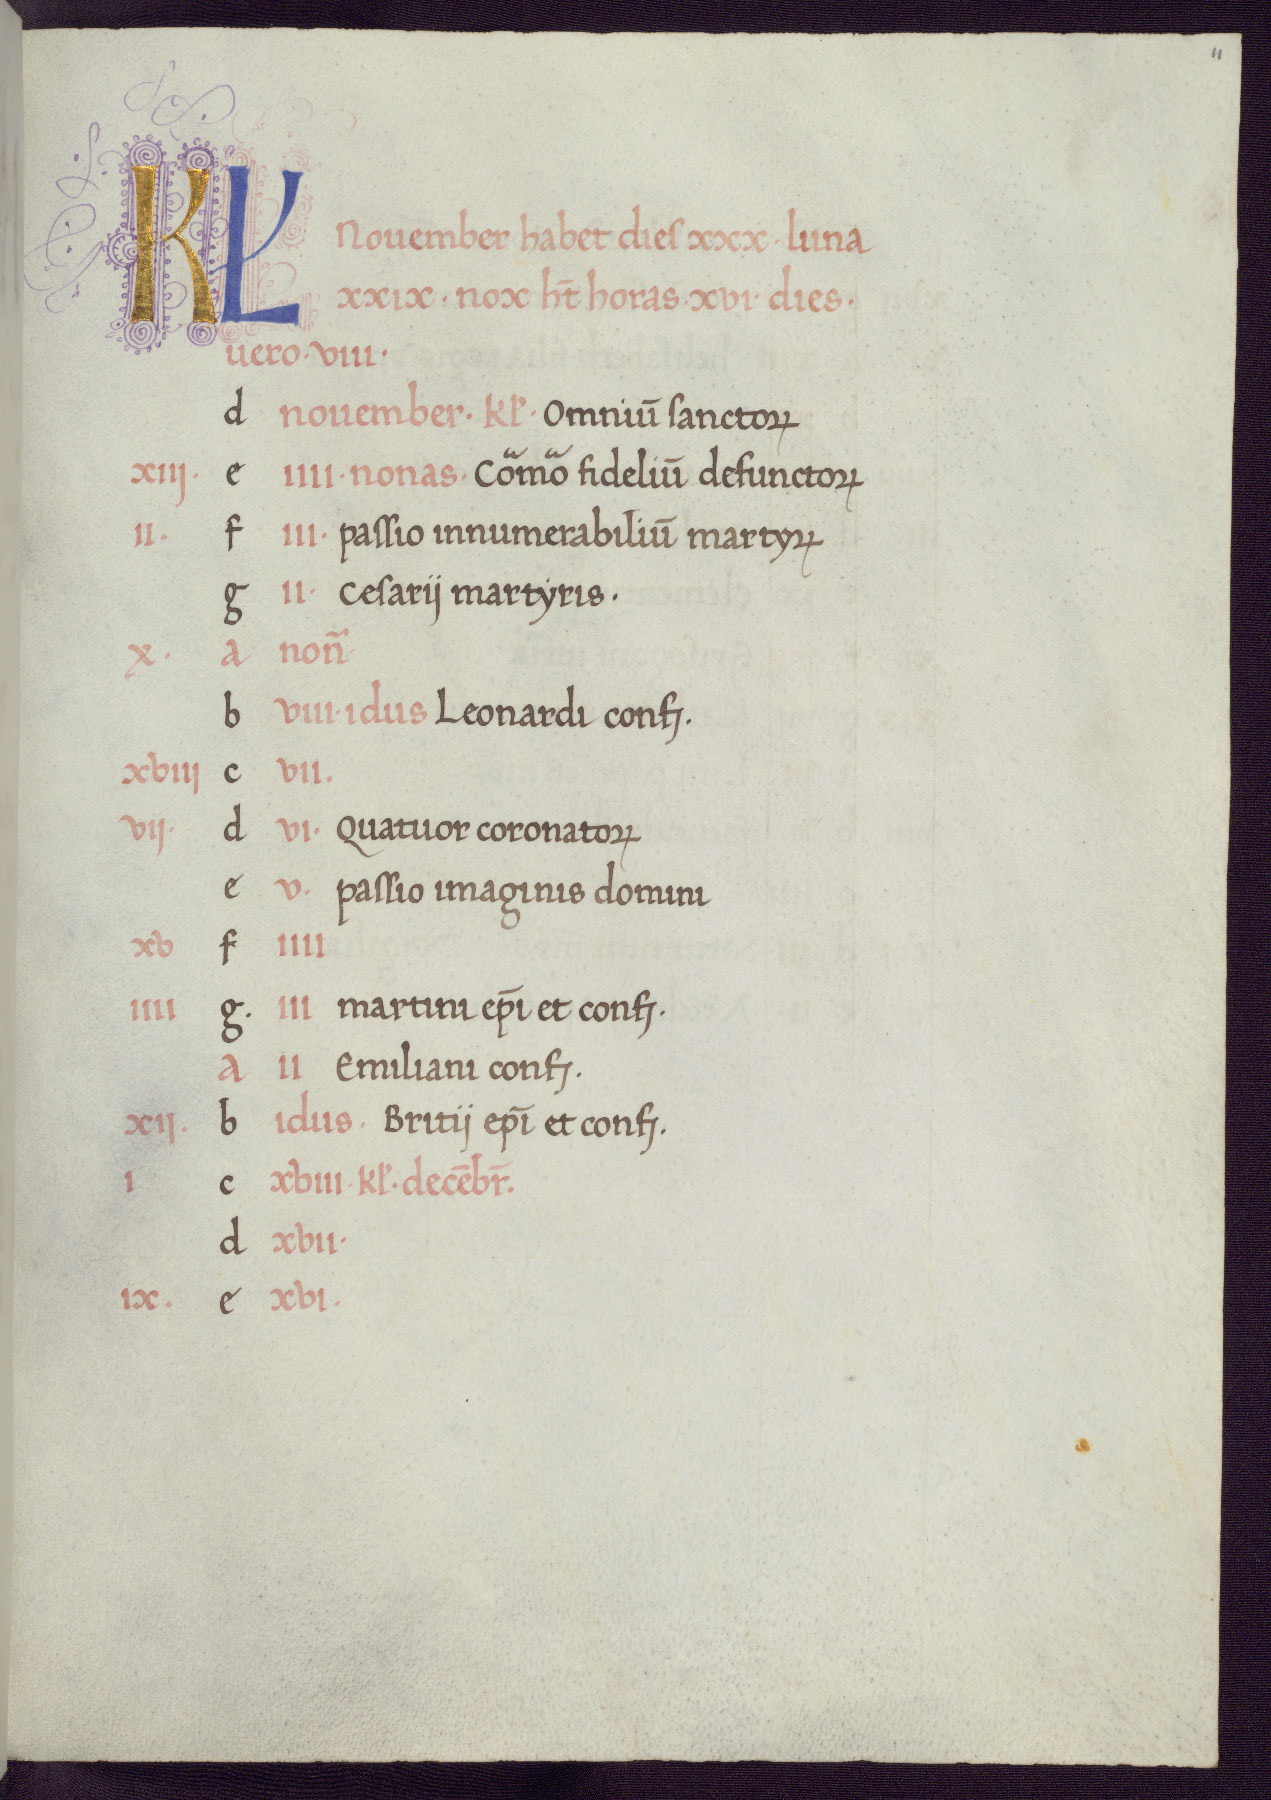 11
KL Nouember habet dieſ xxx · luna
xxix · nox ht̄ horas · xvi · dies ·
uero · viii ·
d nouember · kl̓ · Omniū ſanctoꝝ
xiij · e iiii · nonas · Com̄o fideliū defunctoꝝ
ii · f iii · paſſio innumerabiliū martyꝝ
g ii · Ceſarij martyris ·
x · a non̄
b viii · idus Leonardi conf̄.
xviij c vii ·
vij · d vi · Quatuor coronatoꝝ
e v · paſſio imaginis domini
xv f iiii
iiii g · iii martini ep̄i et conf̄.
a ii Emiliani conf̄.
xij · b idus · Britij ep̄i et conf̄.
i c xviii kl̓ · decēbr̄.
d xvii ·
ix · e xvi ·